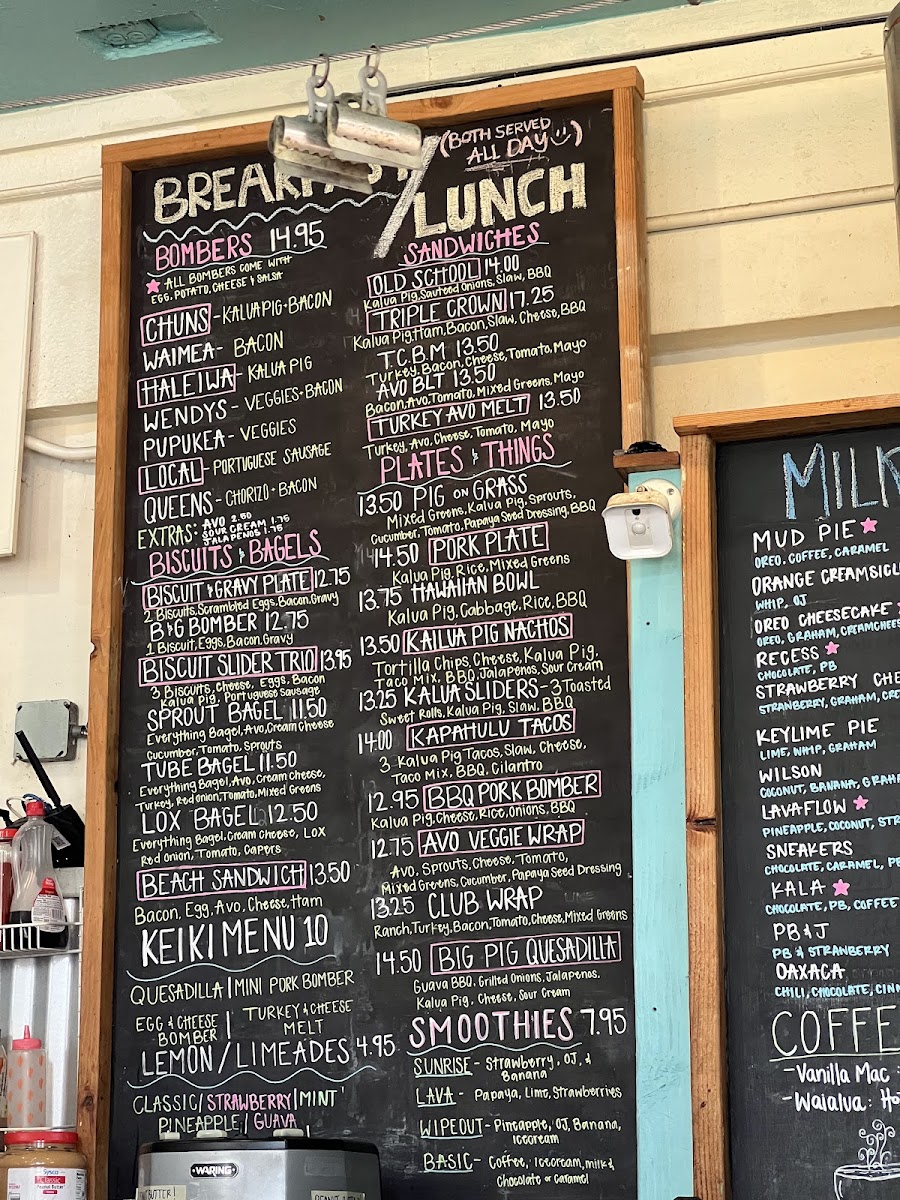 BREAKFAST / LUNCH
(BOTH SERVED
ALL DAY)
BOMBERS 14.95
ALL BOMBERS COME WITH
EGG, POTATO, CHEESE & SALSA
CHUNS - KALUA PIG + BACON
WAIMEA - BACON
HALEIWA - KALUA PIG
WENDYS - VEGGIES + BACON
PUPUKEA - VEGGIES
LOCAL - PORTUGUESE SAUSAGE
QUEENS - CHORIZO + BACON
EXTRAS: AVO 2.50
SOUR CREAM 1.75
JALAPENOS 1.75
BISCUITS & BAGELS
BISCUIT & GRAVY PLATE 12.75
2 Biscuits, Scrambled Eggs, Bacon, Gravy
B&G BOMBER 12.75
1 Biscuit, Eggs, Bacon, Gravy
BISCUIT SLIDER TRIO 13.95
3 Biscuits, Cheese, Eggs, Bacon
Kalua Pig, Portuguese Sausage
SPROUT BAGEL 11.50
Everything Bagel, Avo, Cream Cheese
Cucumber, Tomato, Sprouts
TUBE BAGEL 11.50
Everything Bagel, Avo, Cream Cheese,
Turkey, Red onion, Tomato, Mixed Greens
LOX BAGEL 12.50
Everything Bagel, Cream Cheese, Lox
Red Onion, Tomato, Capers
BEACH SANDWICH 13.50
Bacon, Egg, Avo, Cheese, Ham
KEIKI MENU 10
QUESADILLA | MINI PORK BOMBER
EGG & CHEESE BOMBER | TURKEY & CHEESE MELT
LEMON / LIMEADES 4.95
CLASSIC / STRAWBERRY | MINT
PINEAPPLE / GUAVA
SANDWICHES
OLD SCHOOL 14.00
Kalua Pig, Sauteed Onions, Slaw, BBQ
TRIPLE CROWN 17.25
Kalua Pig, Ham, Bacon, Slaw, Cheese, BBQ
T.C.B.M 13.50
Turkey, Bacon, Cheese, Tomato, Mayo
AVO BLT 13.50
Bacon, Avo, Tomato, Mixed Greens, Mayo
TURKEY AVO MELT 13.50
Turkey, Avo, Cheese, Tomato, Mayo
PLATES & THINGS
13.50 PIG ON GRASS
Mixed Greens, Kalua Pig, Sprouts,
Cucumber, Tomato, Papaya Seed Dressing, BBQ
14.50 PORK PLATE
Kalua Pig, Rice, Mixed Greens
13.75 HAWAIIAN BOWL
Kalua Pig, Cabbage, Rice, BBQ
13.50 KAILUA PIG NACHOS
Tortilla Chips, Cheese, Kalua Pig,
Taco Mix, BBQ, Jalapenos, Sour Cream
13.25 KALUA SLIDERS - 3 Toasted
Sweet Rolls, Kalua Pig, Slaw, BBQ
14.00 KAPAHULU TACOS
3 Kalua Pig Tacos, Slaw, Cheese,
Taco Mix, BBQ, Cilantro
12.95 BBQ PORK BOMBER
Kalua Pig, Cheese, Rice, Onions, BBQ
12.75 AVO VEGGIE WRAP
Avo, Sprouts, Cheese, Tomato,
Mixed Greens, Cucumber, Papaya Seed Dressing
13.25 CLUB WRAP
Ranch, Turkey, Bacon, Tomato, Cheese, Mixed Greens
14.50 BIG PIG QUESADILLA
Guava BBQ, Grilled Onions, Jalapenos,
Kalua Pig, Cheese, Sour Cream
SMOOTHIES 7.95
SUNRISE - Strawberry, OJ, &
Banana
LAVA - Papaya, Lime, Strawberries
WIPEOUT - Pineapple, OJ, Banana,
Icecream
BASIC - Coffee, Icecream, milk &
Chocolate or Caramel
MILK
MUD PIE
OREO, COFFEE, CARAMEL
ORANGE CREAMSICL
WHIP, OJ
OREO CHEESECAKE
OREO, GRAHAM, CREAMCHEES
RECESS
CHOCOLATE, PB
STRAWBERRY CHE
STRAWBERRY, GRAHAM, CRE
KEYLIME PIE
LIME, WHIP, GRAHAM
WILSON
COCONUT, BANANA, GRAHA
LAVAFLOW
PINEAPPLE, COCONUT, STR
SNEAKERS
CHOCOLATE, CARAMEL, PB
KALA
CHOCOLATE, PB, COFFEE
PB & J
PB & STRAWBERRY
OAXACA
CHILI, CHOCOLATE, CINN
COFFE
- Vanilla Mac
- Waialua: Ho
WARING
Sysco
Classic
Peanut Butter
BUTTER!